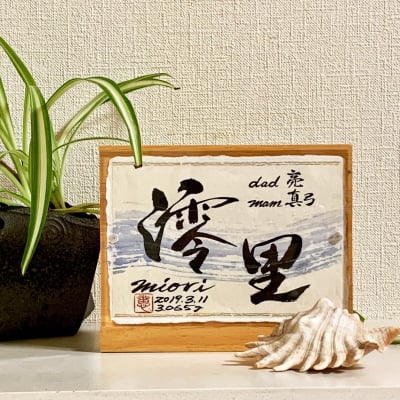 澪里
dad 亮
mam 真弓
miori
2019.3.11
3.065g